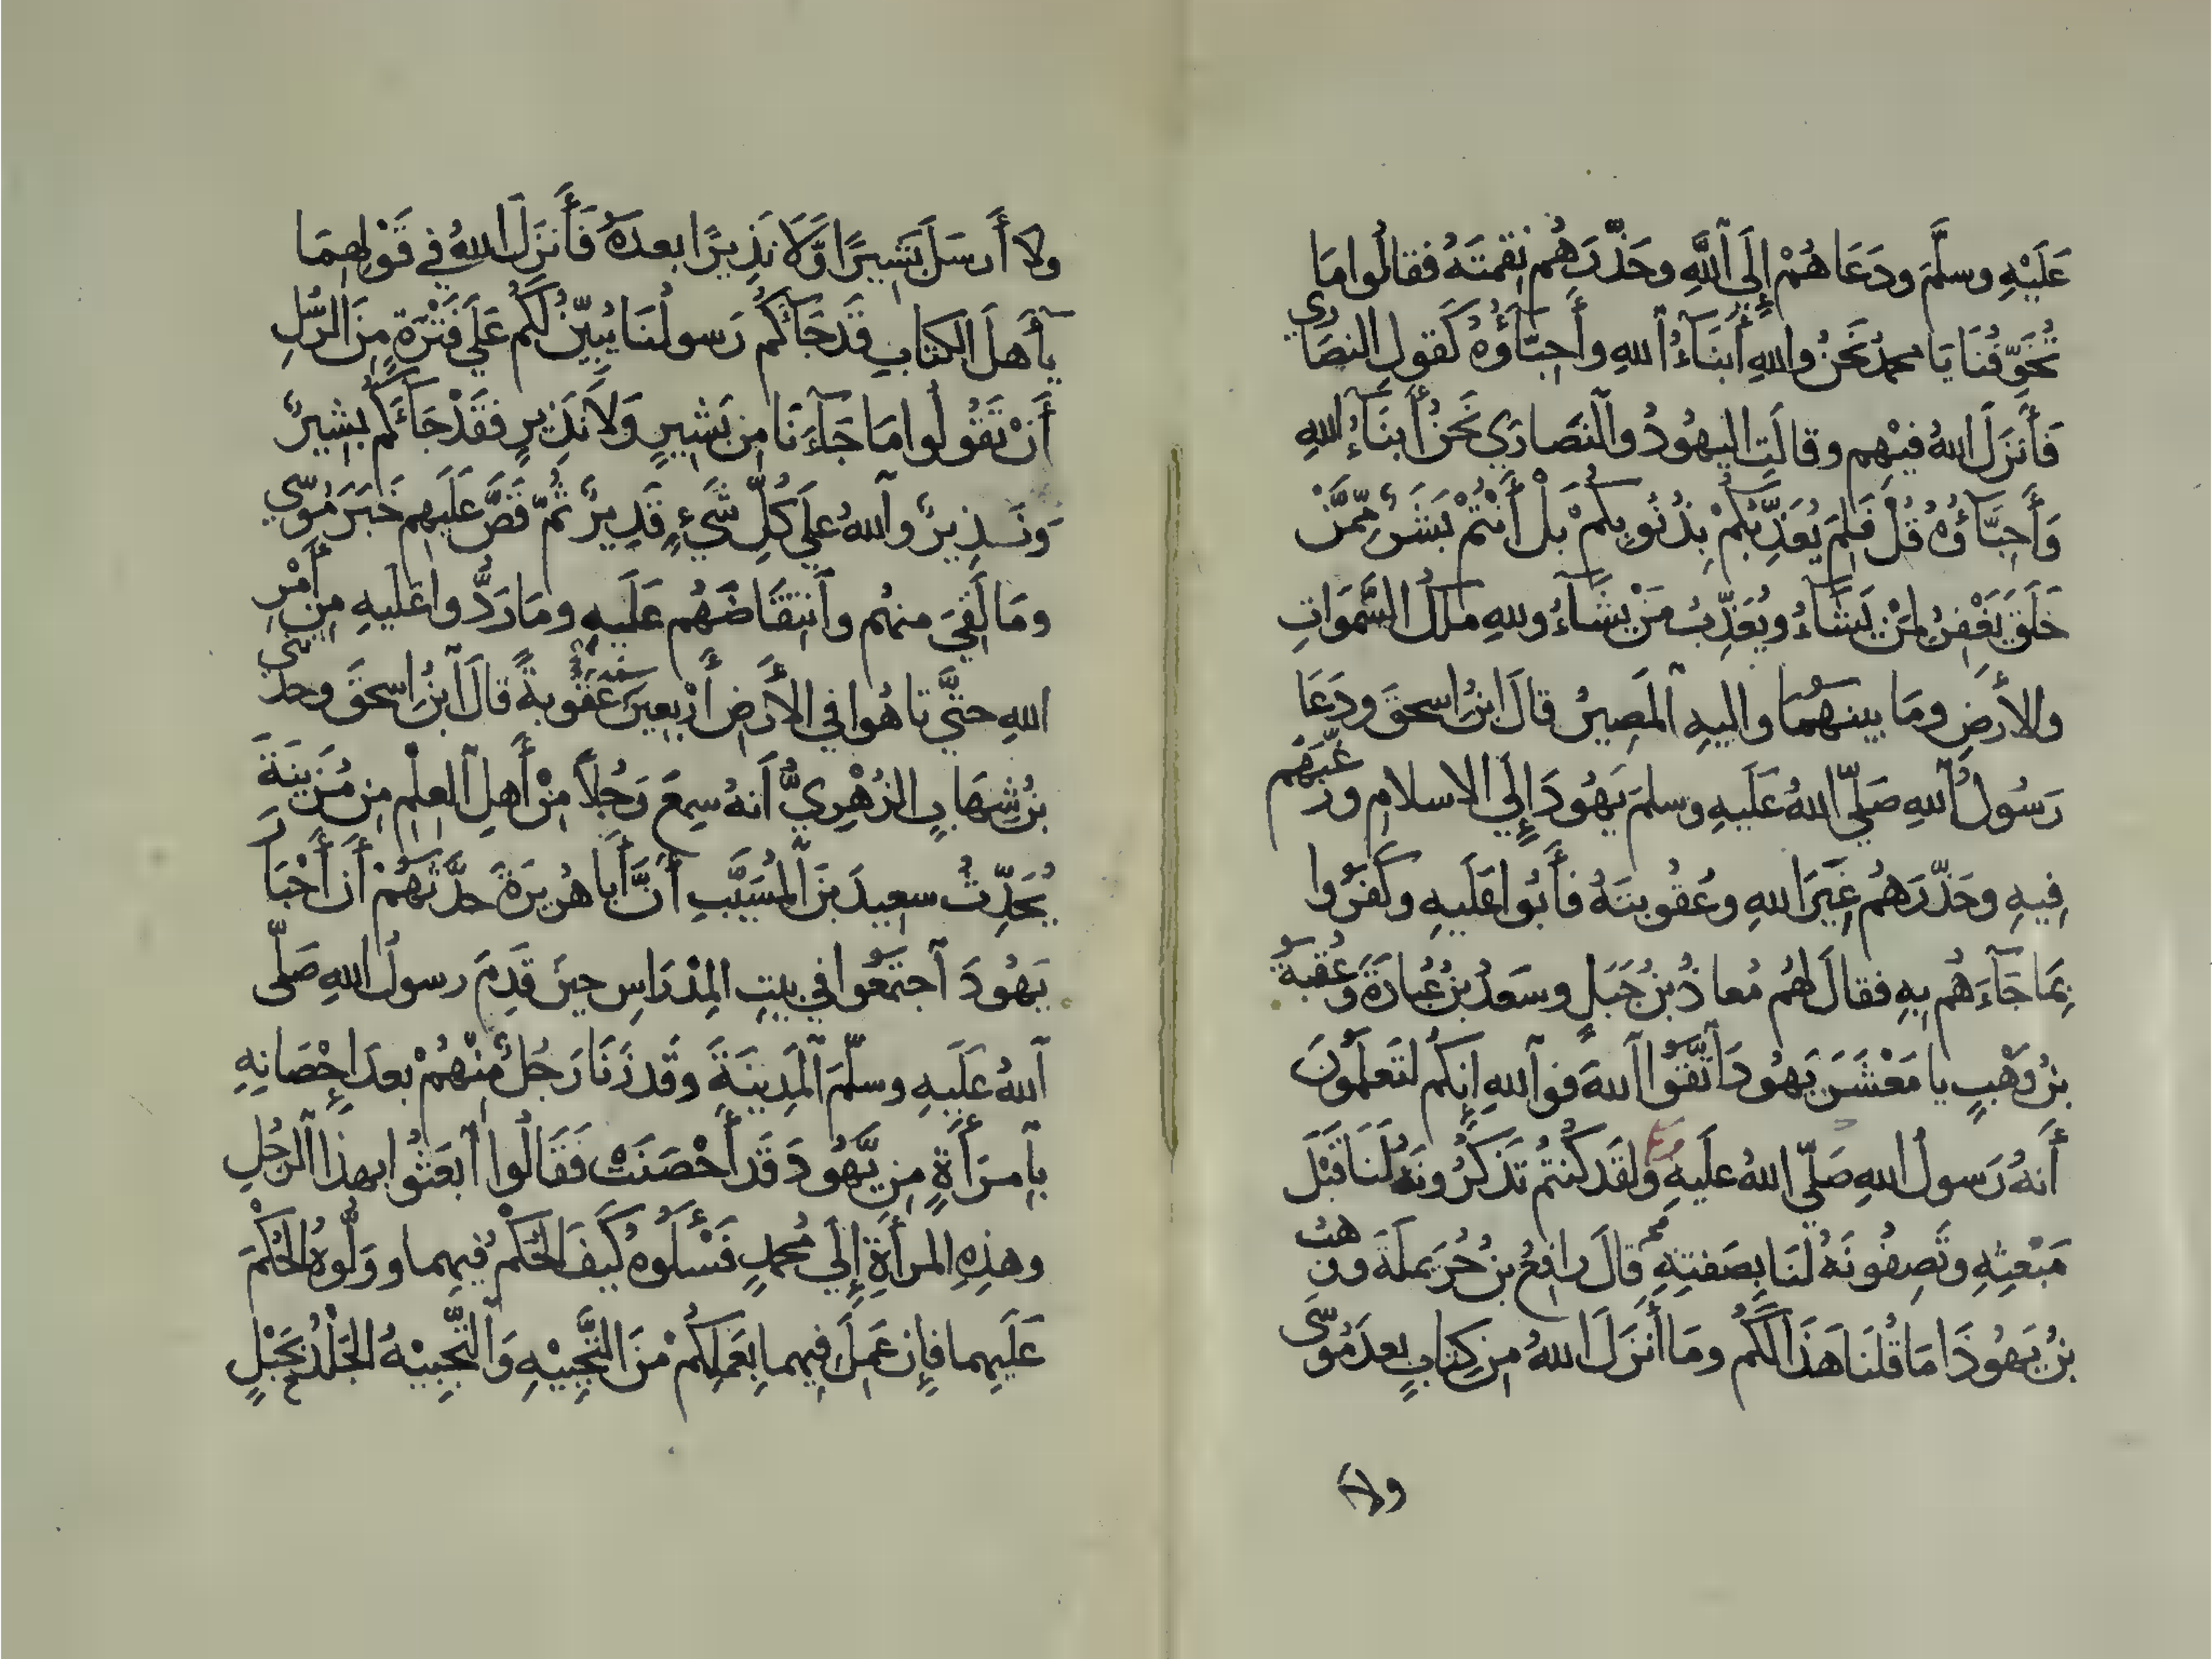 عَلَيْهِ وسلَّمَ ودَعَا هُمْ إِلَي ٱللَّهِ وحَذَّرَهُم نِقمتَهُ فقالُوا مَا
تُخَوِّفُنَا يَا محمدُ نَحنُ واللهِ أَبنَآءُ ٱللهِ وأَحِبَّآؤُهُ كَقولِ النصَارَي
فَأَنزَلَ اللهُ فيْهِم وقالَتِ اليهُودُ وٱلنصَارَي نَحنُ أَبنَآءُ اللهِ
وَأَحِبَّآؤُهُ قُلْ فَلِمَ يُعَذِّبُكُمْ بِذُنُوبِكُمْ بَلْ أَنْتُمْ بَشَرٌ مِّمَّنْ
خَلَقَ يَغْفِرُ لِمَنْ يَشَآءُ ويُعَذِّبُ مَنْ يشَآءُ وللهِ ملكُ السَّمَواتِ
والأَرضِ ومَا بينهُمَا واليهِ ٱلمَصِيرُ قالَ ابنُ اسحقَ ودَعَا
رَسُولُ ٱللهِ صَلَّي اللهُ عَلَيهِ وسلمَ يَهُودَ إِلَي الاسلامِ ورَغَّبَهُم
فِيهِ وحَذَّرَهُم غِيَرَ اللهِ وعُقُوبتَهُ فأَبَوا عَلَيهِ وكَفَرُوا
بِمَا جَآءَهُم بِهِ فقالَ لهُم مُعاذُ بنُ جَبَلٍ وسَعدُ بنُ عُبَادَةَ وَعُقبةُ
بنُ وَهْبٍ يا مَعْشَرَ يَهُودَ ٱتَّقُوا ٱللهَ فوٱللهِ إِنكُم لتَعلَمُونَ
أَنهُ رَسولُ اللهِ صَلَّي اللهُ علَيهِ ولَقَد كُنتُم تَذكُرُونَهُ لَنَا قَبْلَ
مَبْعثِهِ وتَصِفُونَهُ لَنَا بِصفتِهِ قالَ رافِعُ بنُ حُرَيمِلَةَ ووَهبُ
بنُ يَهُوذَا مَا قُلْنَا هَذَا لَكُم ومَا أَنزَلَ اللهُ مِن كِتابٍ بعدَ مُوسَى
ولا
ولا أَرسَلَ بَشِيرًا وَّلَا نَذِيرًا بعدَهُ فَأَنزَلَ اللهُ في قَوْلِهِمَا
يآ أَهلَ الكتابِ قَدجَآئَكُم رَسولُنَا يُبيِّنُ لَكُم عَلَي فَتْرَةٍ مِنَ الرُّسُلِ
أَنْ تَقُولُوا مَا جَآءَنَا مِن بَشِيرٍ وَلَا نَذِيرٍ فقَدْ جَآئَكُم بشِيرٌ
وَنَذِيرٌ وٱللهُ عَلَي كُلِّ شَيءٍ قَدِيرٌ ثُمَّ قَصَّ عَلَيهِم خَبَرَ مُوسَّي
ومَا لَقِيَ منهُم وٱنتِقَاضَهُم عَلَيهِ ومَا رَدُّوا عَلَيهِ مِن أَمْرِ
اللهِ حتَّي تاهُوا في الأَرضِ أَرْبعِينَ سَنَةً عُقُوبةً قالَ ٱبنُ اسحقَ وحدَّثَني
بنُ شِهَابٍ الزُهْرِيُّ أَنهُ سِمعَ رَجُلاً مِنْ أَهلِ ٱلعِلْمِ مِن مُزَينَةَ
يُحَدِّثُ سعِيدَ بنَ ٱلمُسَيَّبِ أَنَّ أَبا هُرَيرَةَ حدَّثَهُمْ أَن أَحْبَارَ
يَهُودَ ٱجتَمَعُوا في بيتِ المِدْرَاسِ حِينَ قَدِمَ رسولُ اللهِ صَلَّى
ٱللهُ عَلَيهِ وسلَّمَ ٱلمَدِينَةَ وقَد زَنَا رَجُلٌ مِنْهُمْ بعدَ إِحْصَانِهِ
بٱِمرَأَةٍ مِن يَّهُودَ قَد أَحْصَنَتْ فَقَالُوا ٱبعَثُوا بهذا ٱلرجُلِ
وهذِهِ المرأَةِ إِلَي مُحمدٍ فَسْأَلُوهُ كَيفَ الحُكمُ فِيهِما ووَلُّوهُ الحُكْمَ
عَلَيهِما فإِن عَمِلَ فِيهِما بِعَمَلِكُمْ مْنَ التَّجْبِيْهِ وَٱلتَّجْبِيْهُ الجَلْدُ بحَبْلٍ